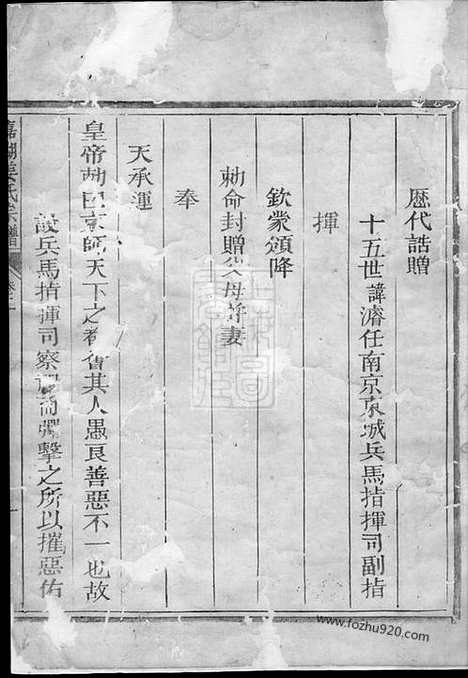 歷代誥贈
十五世諱濬任南京東城兵馬指揮司副指
揮
欽蒙頒降
勅命封贈父母并妻
奉
天承運
皇帝勅曰京師天下之都會其人愚良善惡不一也故
設兵馬指揮司察 而彈擊之所以摧惡佑
嘉湖姜氏宗譜
卷之一
www.fozhu920.com